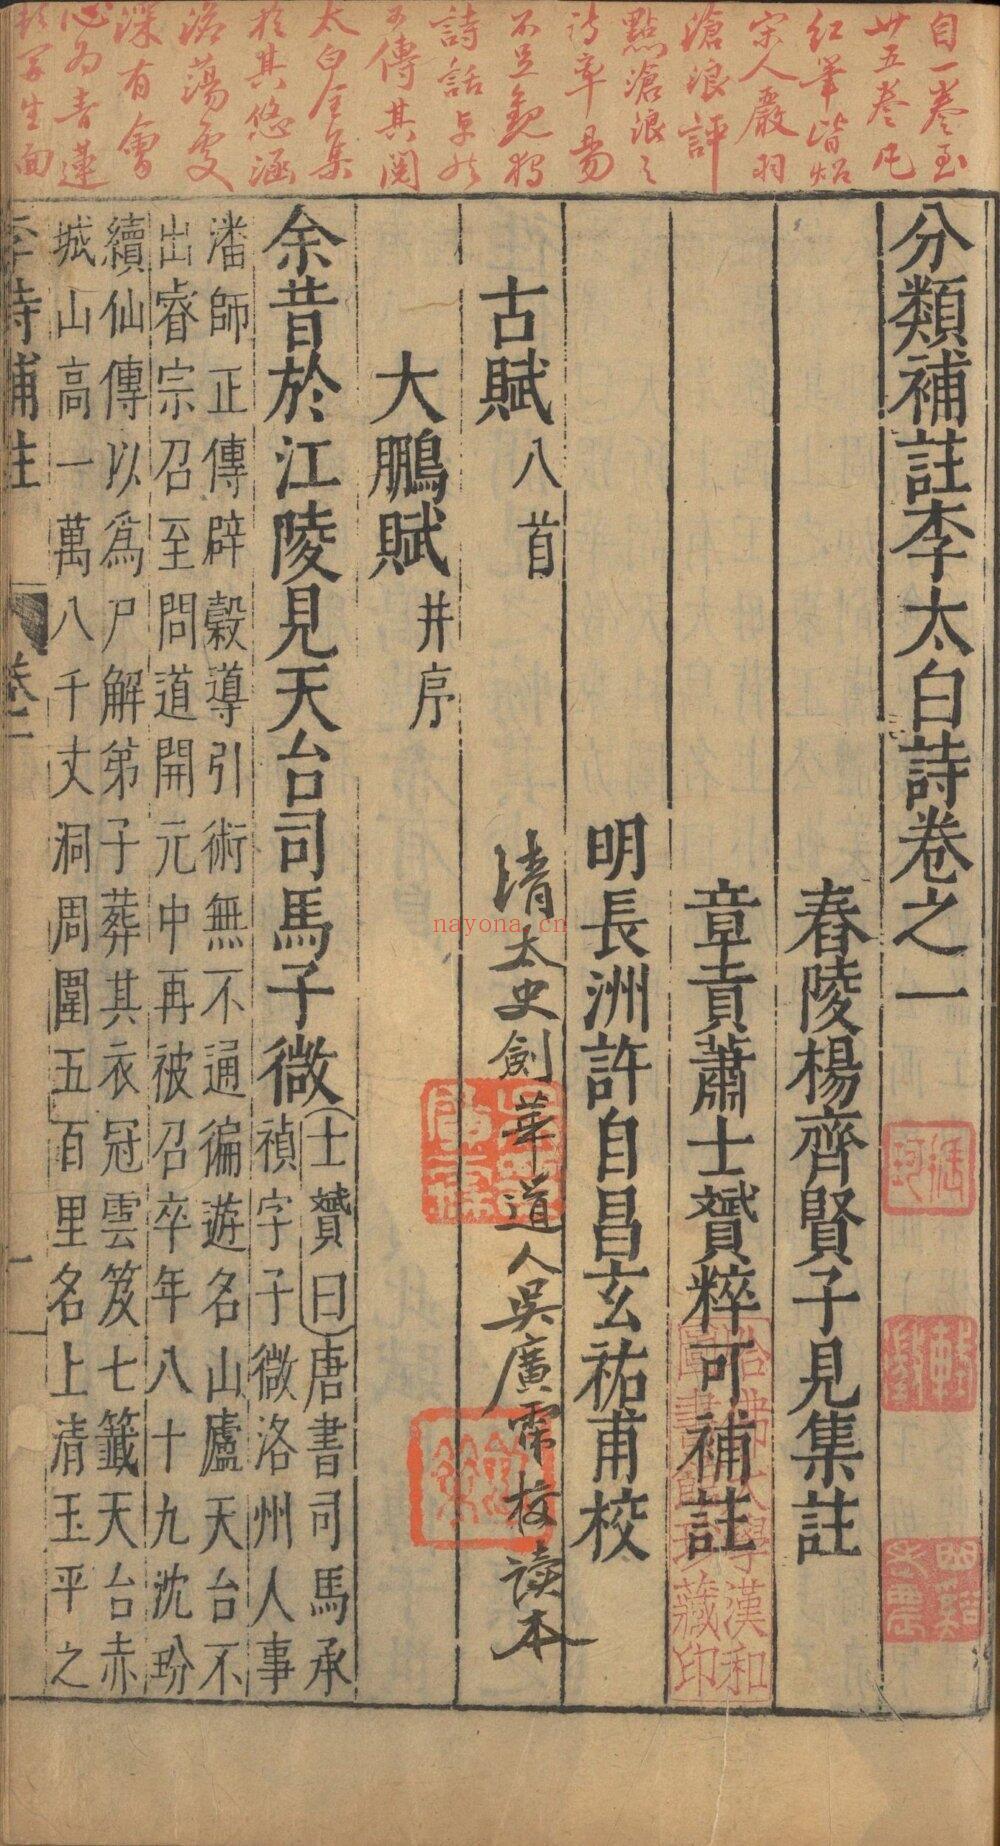 自一卷至
卅五卷凡
紅筆皆
宋人嚴羽
滄浪評
點滄浪之
詩率易
不足觀獨
詩話
不傳其閱
太白全集
於其悠涵
浩蕩處
深有會
心為青蓮
生面
分類補註李太白詩卷之一
舂陵楊齊賢子見集註
章貢蕭士贇粹可補註
明長洲許自昌玄祐甫校
清太史劍華道人吳廣霈校读本
古賦八首
大鵬賦并序
余昔於江陵見天台司馬子微
士贇曰唐書司馬承
禎字子微洛州人事
潘師正傳辟穀導引術無不通徧遊名山廬天台不
出睿宗召至問道開元中再被召卒年八十九沈玢
續仙傳以爲尸解弟子葬其衣冠雲笈七籤天台赤
城山高一萬八千丈洞周圍五百里名上清玉平之
李詩補註
卷一
一
哈佛大學漢和
圖書館珍藏印
nayona.cn